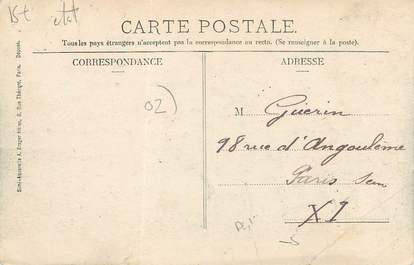 15t état
CARTE POSTALE.
Tous les pays étrangers n'acceptent pas la correspondance au recto. (Se renseigner à la poste).
CORRESPONDANCE
ADRESSE
02)
M Guérin
98 rue d'Angoulème
Paris
XI
Rue Thérapé, Paris. Déposé.